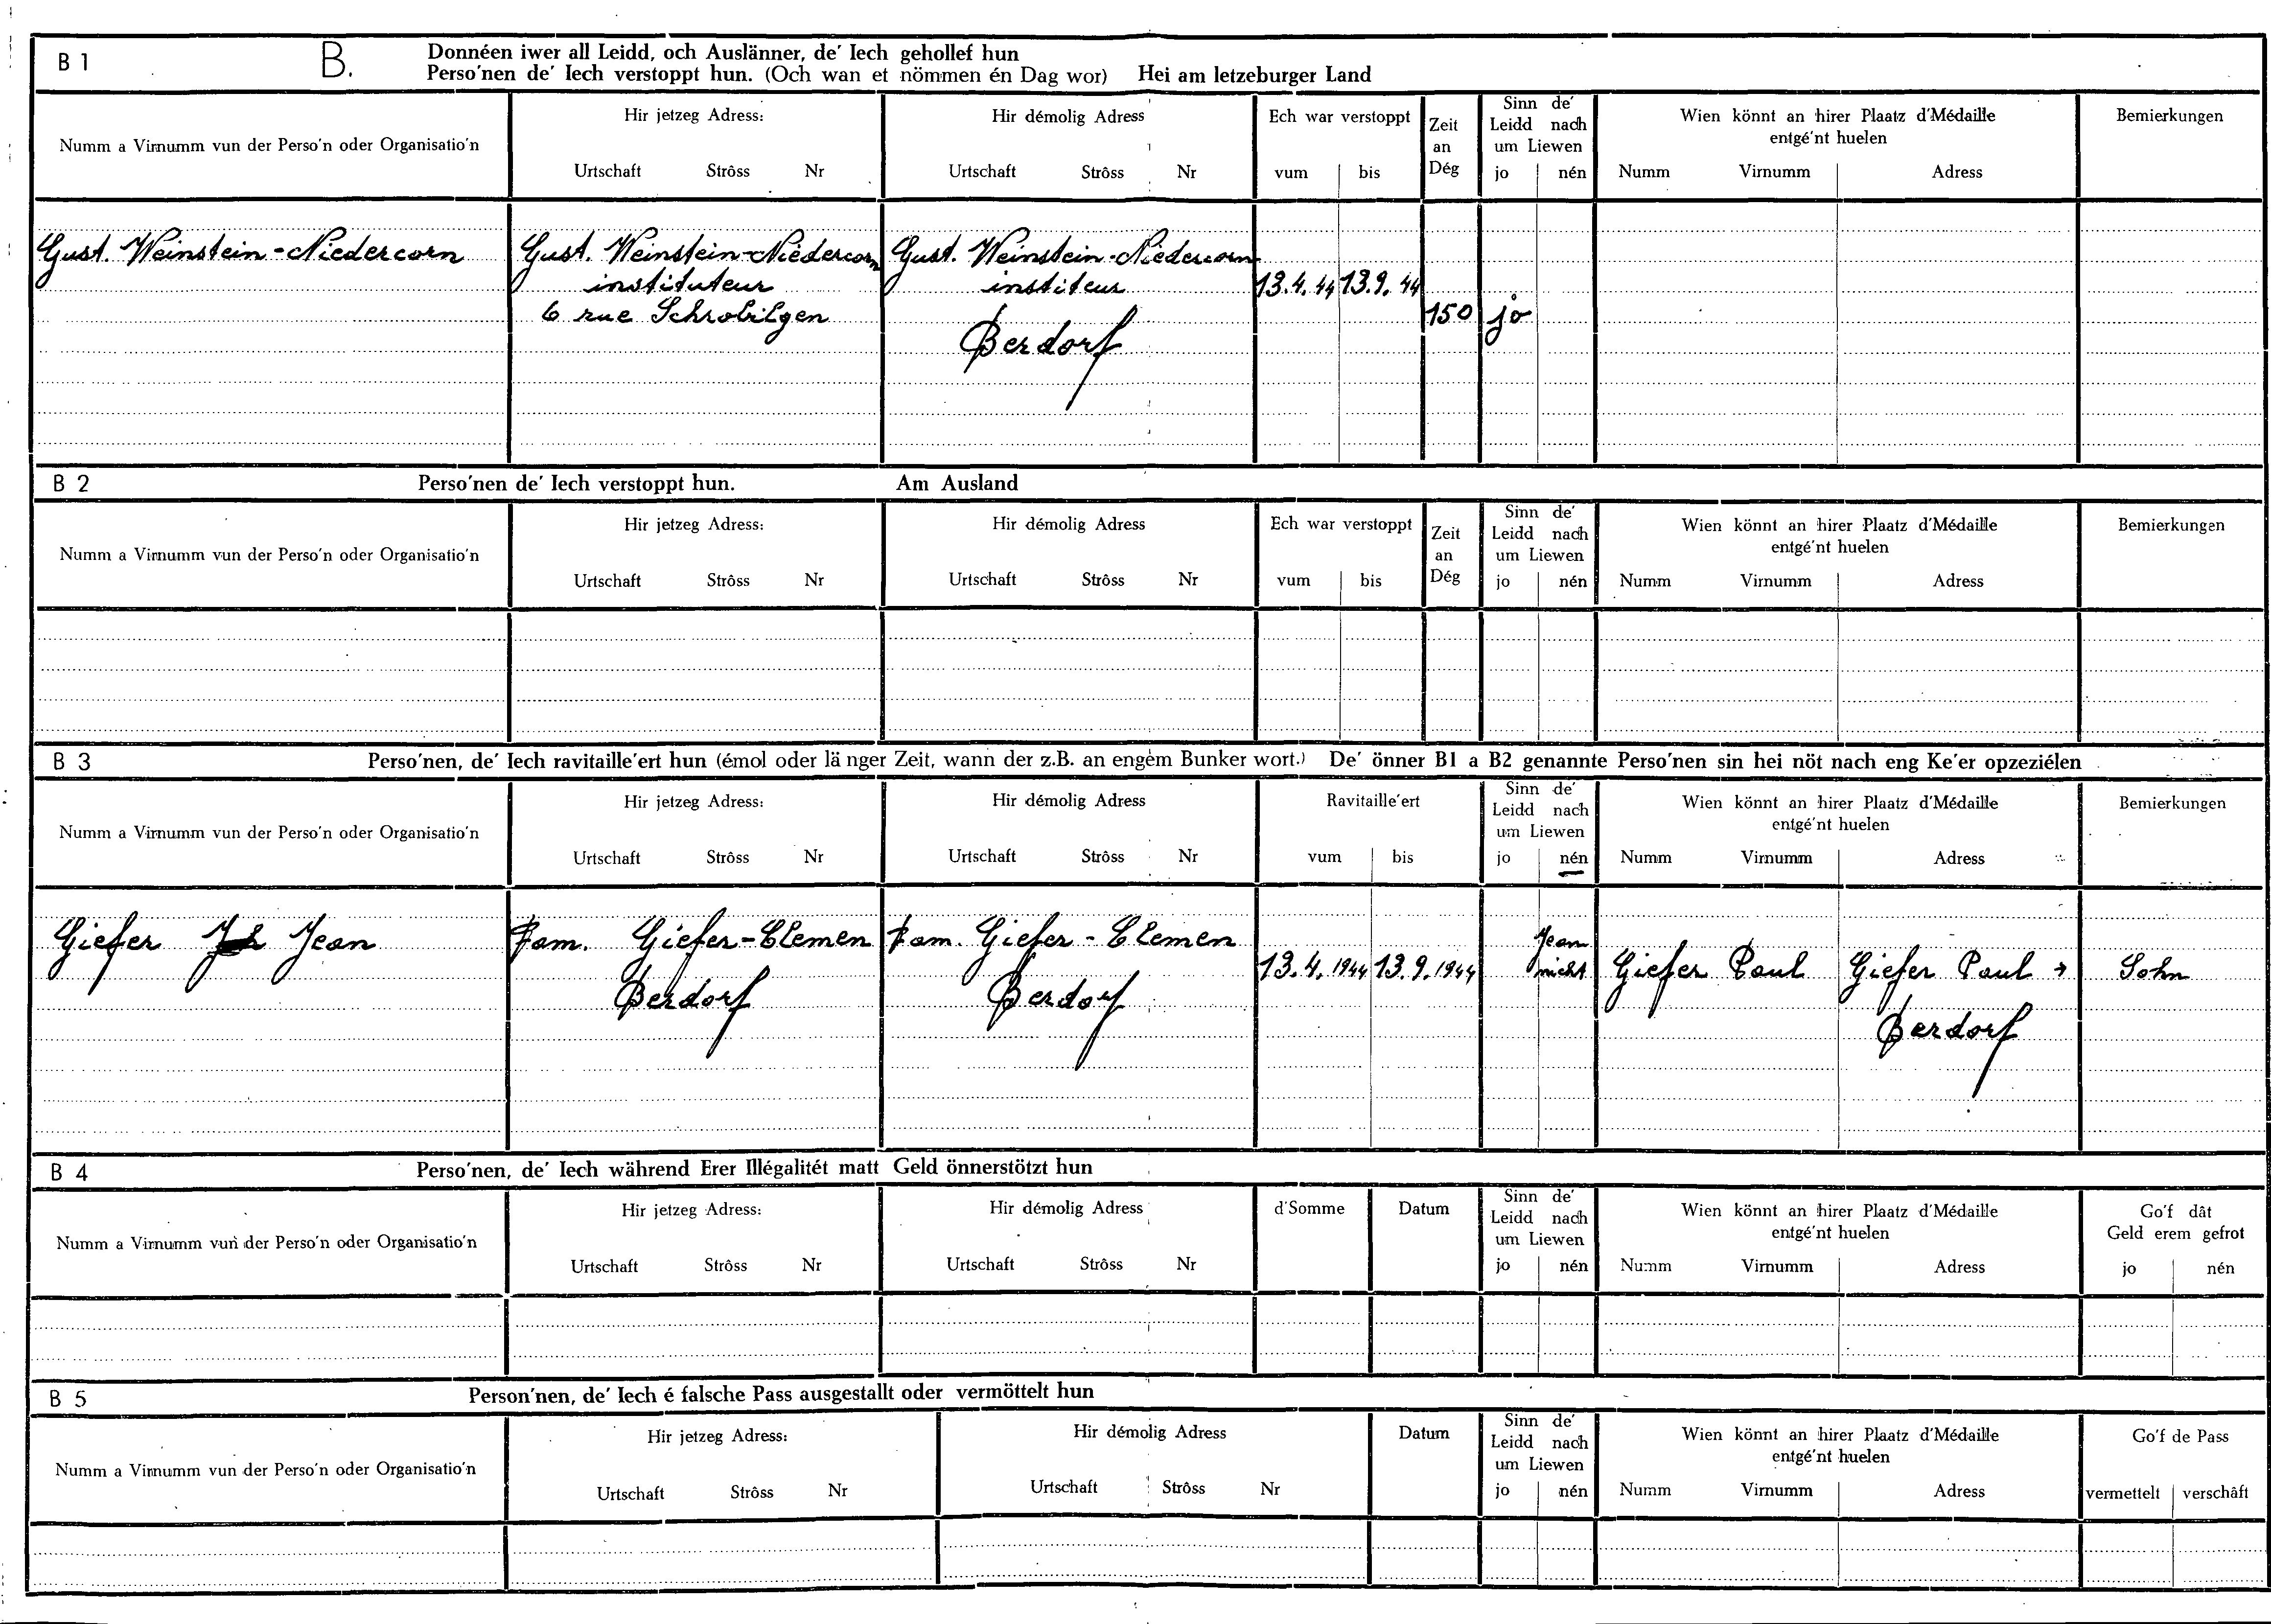 B 1 B. Donnéen iwer all Leidd, och Auslänner, de' Iech gehollef hun
Perso'nen de' Iech verstoppt hun. (Och wan et nömmen én Dag wor) Hei am letzeburger Land
Numm a Virnumm vun der Perso'n oder Organisatio'n
Hir jetzeg Adress:
Urtschaft Strôss Nr
Hir démolig Adress
Urtschaft Strôss Nr
Ech war verstoppt
vum bis
Zeit
an
Dég
Sinn de'
Leidd nach
um Liewen
jo nén
Wien könnt an hirer Plaatz d'Médaille
entgé'nt huelen
Numm Virnumm Adress
Bemierkungen
Gust. Weinstein-Niedercorn
Gust. Weinstein-Niedercorn
instituteur
6 rue Schrobilgen
Gust. Weinstein-Niedercorn
institeur
Berdorf
13.4.44 13.9.44
150
jo
B 2 Perso'nen de' Iech verstoppt hun. Am Ausland
Numm a Virnumm vun der Perso'n oder Organisatio'n
Hir jetzeg Adress:
Urtschaft Strôss Nr
Hir démolig Adress
Urtschaft Strôss Nr
Ech war verstoppt
vum bis
Zeit
an
Dég
Sinn de'
Leidd nach
um Liewen
jo nén
Wien könnt an hirer Plaatz d'Médaille
entgé'nt huelen
Numm Virnumm Adress
Bemierkungen
B 3 Perso'nen, de' Iech ravitaille'ert hun (émol oder länger Zeit, wann der z.B. an engem Bunker wort.) De' önner B1 a B2 genannte Perso'nen sin hei nöt nach eng Ke'er opzeziélen
Numm a Virnumm vun der Perso'n oder Organisatio'n
Hir jetzeg Adress:
Urtschaft Strôss Nr
Hir démolig Adress
Urtschaft Strôss Nr
Ravitaille'ert
vum bis
Sinn de'
Leidd nach
um Liewen
jo nén
Wien könnt an hirer Plaatz d'Médaille
entgé'nt huelen
Numm Virnumm Adress
Bemierkungen
Giefer Jean
Fam. Giefer-Clemen
Berdorf
Fam. Giefer-Clemen
Berdorf
13.4.1944 13.9.1944
Jean
nicht
Giefer Paul
Giefer Paul
Berdorf
Sohn
B 4 Perso'nen, de' Iech während Erer Illégalitét matt Geld önnerstötzt hun
Numm a Virnumm vun der Perso'n oder Organisatio'n
Hir jetzeg Adress:
Urtschaft Strôss Nr
Hir démolig Adress
Urtschaft Strôss Nr
d'Somme
Datum
Sinn de'
Leidd nach
um Liewen
jo nén
Wien könnt an hirer Plaatz d'Médaille
entgé'nt huelen
Numm Virnumm Adress
Go'f dât
Geld erem gefrot
jo nén
B 5 Person'nen, de' Iech é falsche Pass ausgestallt oder vermöttelt hun
Numm a Virnumm vun der Perso'n oder Organisatio'n
Hir jetzeg Adress:
Urtschaft Strôss Nr
Hir démolig Adress
Urtschaft Strôss Nr
Datum
Sinn de'
Leidd nach
um Liewen
jo nén
Wien könnt an hirer Plaatz d'Médaille
entgé'nt huelen
Numm Virnumm Adress
Go'f de Pass
vermettelt verschâft